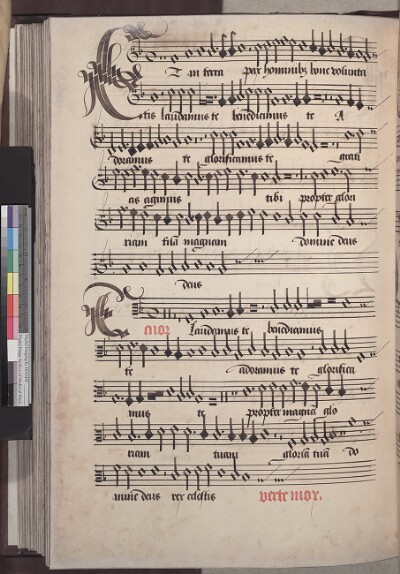 Et in terra pax hominibꝫ bone volunta
tis laudamus te benedicimus te A
doramus te glorificamus te grati
as agimus tibi propter glori
riam magnam domine deus
deus
Tenor Laudamus te benedicimus
te adoramus te glorifica
mus te propter magnā glo
riam tuam gloriā tuā do
mine deus rex celestis verte mox.